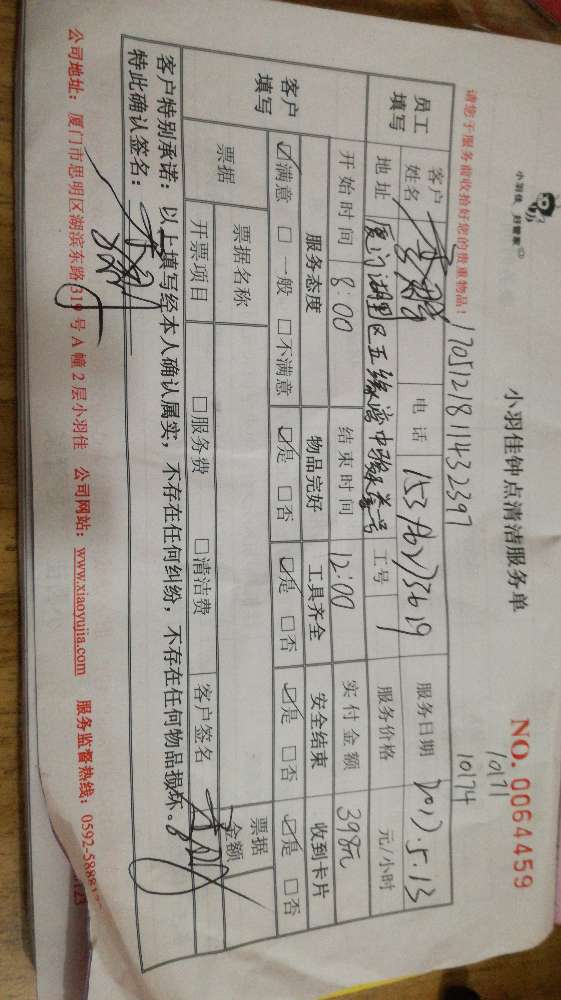 小羽佳 好管家
小羽佳钟点清洁服务单
NO. 0064459
10171
10174
请您于服务前收拾好您的贵重物品！
1705121811432397
员工填写
客户姓名
电话
服务日期 2017.5.13
地址 厦门湖里区五缘湾
工号
服务价格 元/小时
开始时间 8:00 结束时间 12:00 实付金额 398元
客户填写
服务态度 物品完好 工具齐全 安全结束 收到卡片
☑满意 □一般 □不满意 ☑是 □否 ☑是 □否 ☑是 □否 ☑是 □否
票据 票据名称 票据金额
开票项目 □服务费 □清洁费 客户签名
客户特别承诺：以上填写经本人确认属实，不存在任何纠纷，不存在任何物品损坏。
特此确认签名：
公司地址：厦门市思明区湖滨东路319号A幢2层小羽佳 公司网站：www.xiaoyujia.com 服务监督热线：0592-5888123